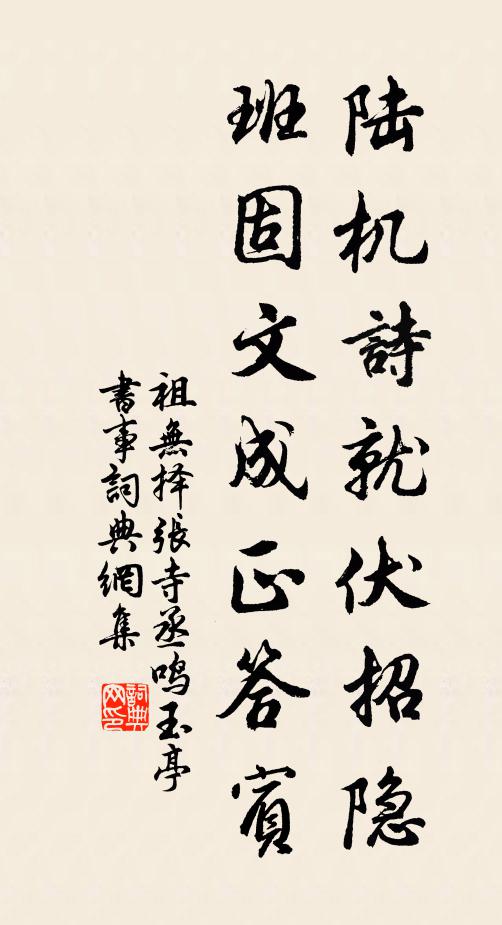 陆机詩就伏招隐
班固文成正答賓
祖無择張寺丞鸣玉亭
書事詞典網集
詞典网印